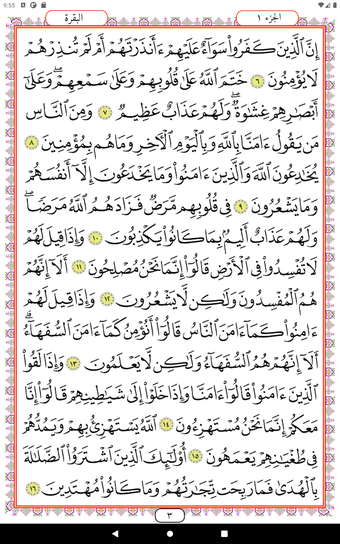 9:55
الجزء ١
البقرة
إِنَّ الَّذِينَ كَفَرُوا سَوَاءٌ عَلَيْهِمْ ءَأَنذَرْتَهُمْ أَمْ لَمْ تُنذِرْهُمْ
لَا يُؤْمِنُونَ ٦ خَتَمَ اللَّهُ عَلَىٰ قُلُوبِهِمْ وَعَلَىٰ سَمْعِهِمْ ۖ وَعَلَىٰ
أَبْصَارِهِمْ غِشَاوَةٌ ۖ وَلَهُمْ عَذَابٌ عَظِيمٌ ٧ وَمِنَ النَّاسِ
مَن يَقُولُ ءَامَنَّا بِاللَّهِ وَبِالْيَوْمِ الْآخِرِ وَمَا هُم بِمُؤْمِنِينَ ٨
يُخَادِعُونَ اللَّهَ وَالَّذِينَ ءَامَنُوا وَمَا يَخْدَعُونَ إِلَّا أَنفُسَهُمْ
وَمَا يَشْعُرُونَ ٩ فِي قُلُوبِهِم مَّرَضٌ فَزَادَهُمُ اللَّهُ مَرَضًا ۖ
وَلَهُمْ عَذَابٌ أَلِيمٌ بِمَا كَانُوا يَكْذِبُونَ ١٠ وَإِذَا قِيلَ لَهُمْ
لَا تُفْسِدُوا فِي الْأَرْضِ قَالُوا إِنَّمَا نَحْنُ مُصْلِحُونَ ١١ أَلَا إِنَّهُمْ
هُمُ الْمُفْسِدُونَ وَلَٰكِن لَّا يَشْعُرُونَ ١٢ وَإِذَا قِيلَ لَهُمْ
ءَامِنُوا كَمَا ءَامَنَ النَّاسُ قَالُوا أَنُؤْمِنُ كَمَا ءَامَنَ السُّفَهَاءُ ۗ
أَلَا إِنَّهُمْ هُمُ السُّفَهَاءُ وَلَٰكِن لَّا يَعْلَمُونَ ١٣ وَإِذَا لَقُوا
الَّذِينَ ءَامَنُوا قَالُوا ءَامَنَّا وَإِذَا خَلَوْا إِلَىٰ شَيَاطِينِهِمْ قَالُوا إِنَّا
مَعَكُمْ إِنَّمَا نَحْنُ مُسْتَهْزِءُونَ ١٤ اللَّهُ يَسْتَهْزِئُ بِهِمْ وَيَمُدُّهُمْ
فِي طُغْيَانِهِمْ يَعْمَهُونَ ١٥ أُولَٰئِكَ الَّذِينَ اشْتَرَوُا الضَّلَالَةَ
بِالْهُدَىٰ فَمَا رَبِحَت تِّجَارَتُهُمْ وَمَا كَانُوا مُهْتَدِينَ ١٦
٣